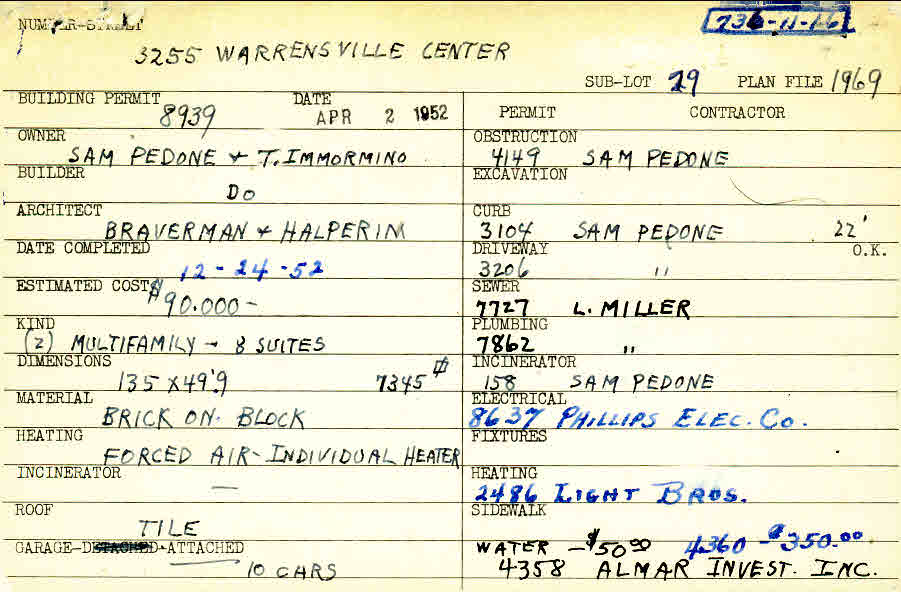 736-11-16
NUMBER-STREET
3255 WARRENSVILLE CENTER
SUB-LOT 29 PLAN FILE 1969
BUILDING PERMIT 8939 DATE APR 2 1952
PERMIT CONTRACTOR
OWNER
SAM PEDONE + T. IMMORMINO
OBSTRUCTION
4149 SAM PEDONE
BUILDER
DO
EXCAVATION
ARCHITECT
BRAVERMAN + HALPERIM
CURB
3104 SAM PEDONE 22'
DATE COMPLETED
12-24-52
DRIVEWAY O.K.
3206 "
ESTIMATED COST
$90.000-
SEWER
7727 L. MILLER
KIND
(2) MULTIFAMILY - 8 SUITES
PLUMBING
7862 "
DIMENSIONS
135 X 49'9 7345
INCINERATOR
158 SAM PEDONE
MATERIAL
BRICK ON BLOCK
ELECTRICAL
8637 PHILLIPS ELEC. CO.
HEATING
FORCED AIR-INDIVIDUAL HEATER
FIXTURES
INCINERATOR
—
HEATING
2486 LIGHT BROS.
ROOF
TILE
SIDEWALK
GARAGE-DETACHED-ATTACHED
10 CARS
WATER -$50.00 4360 -$350.00
4358 ALMAR INVEST. INC.